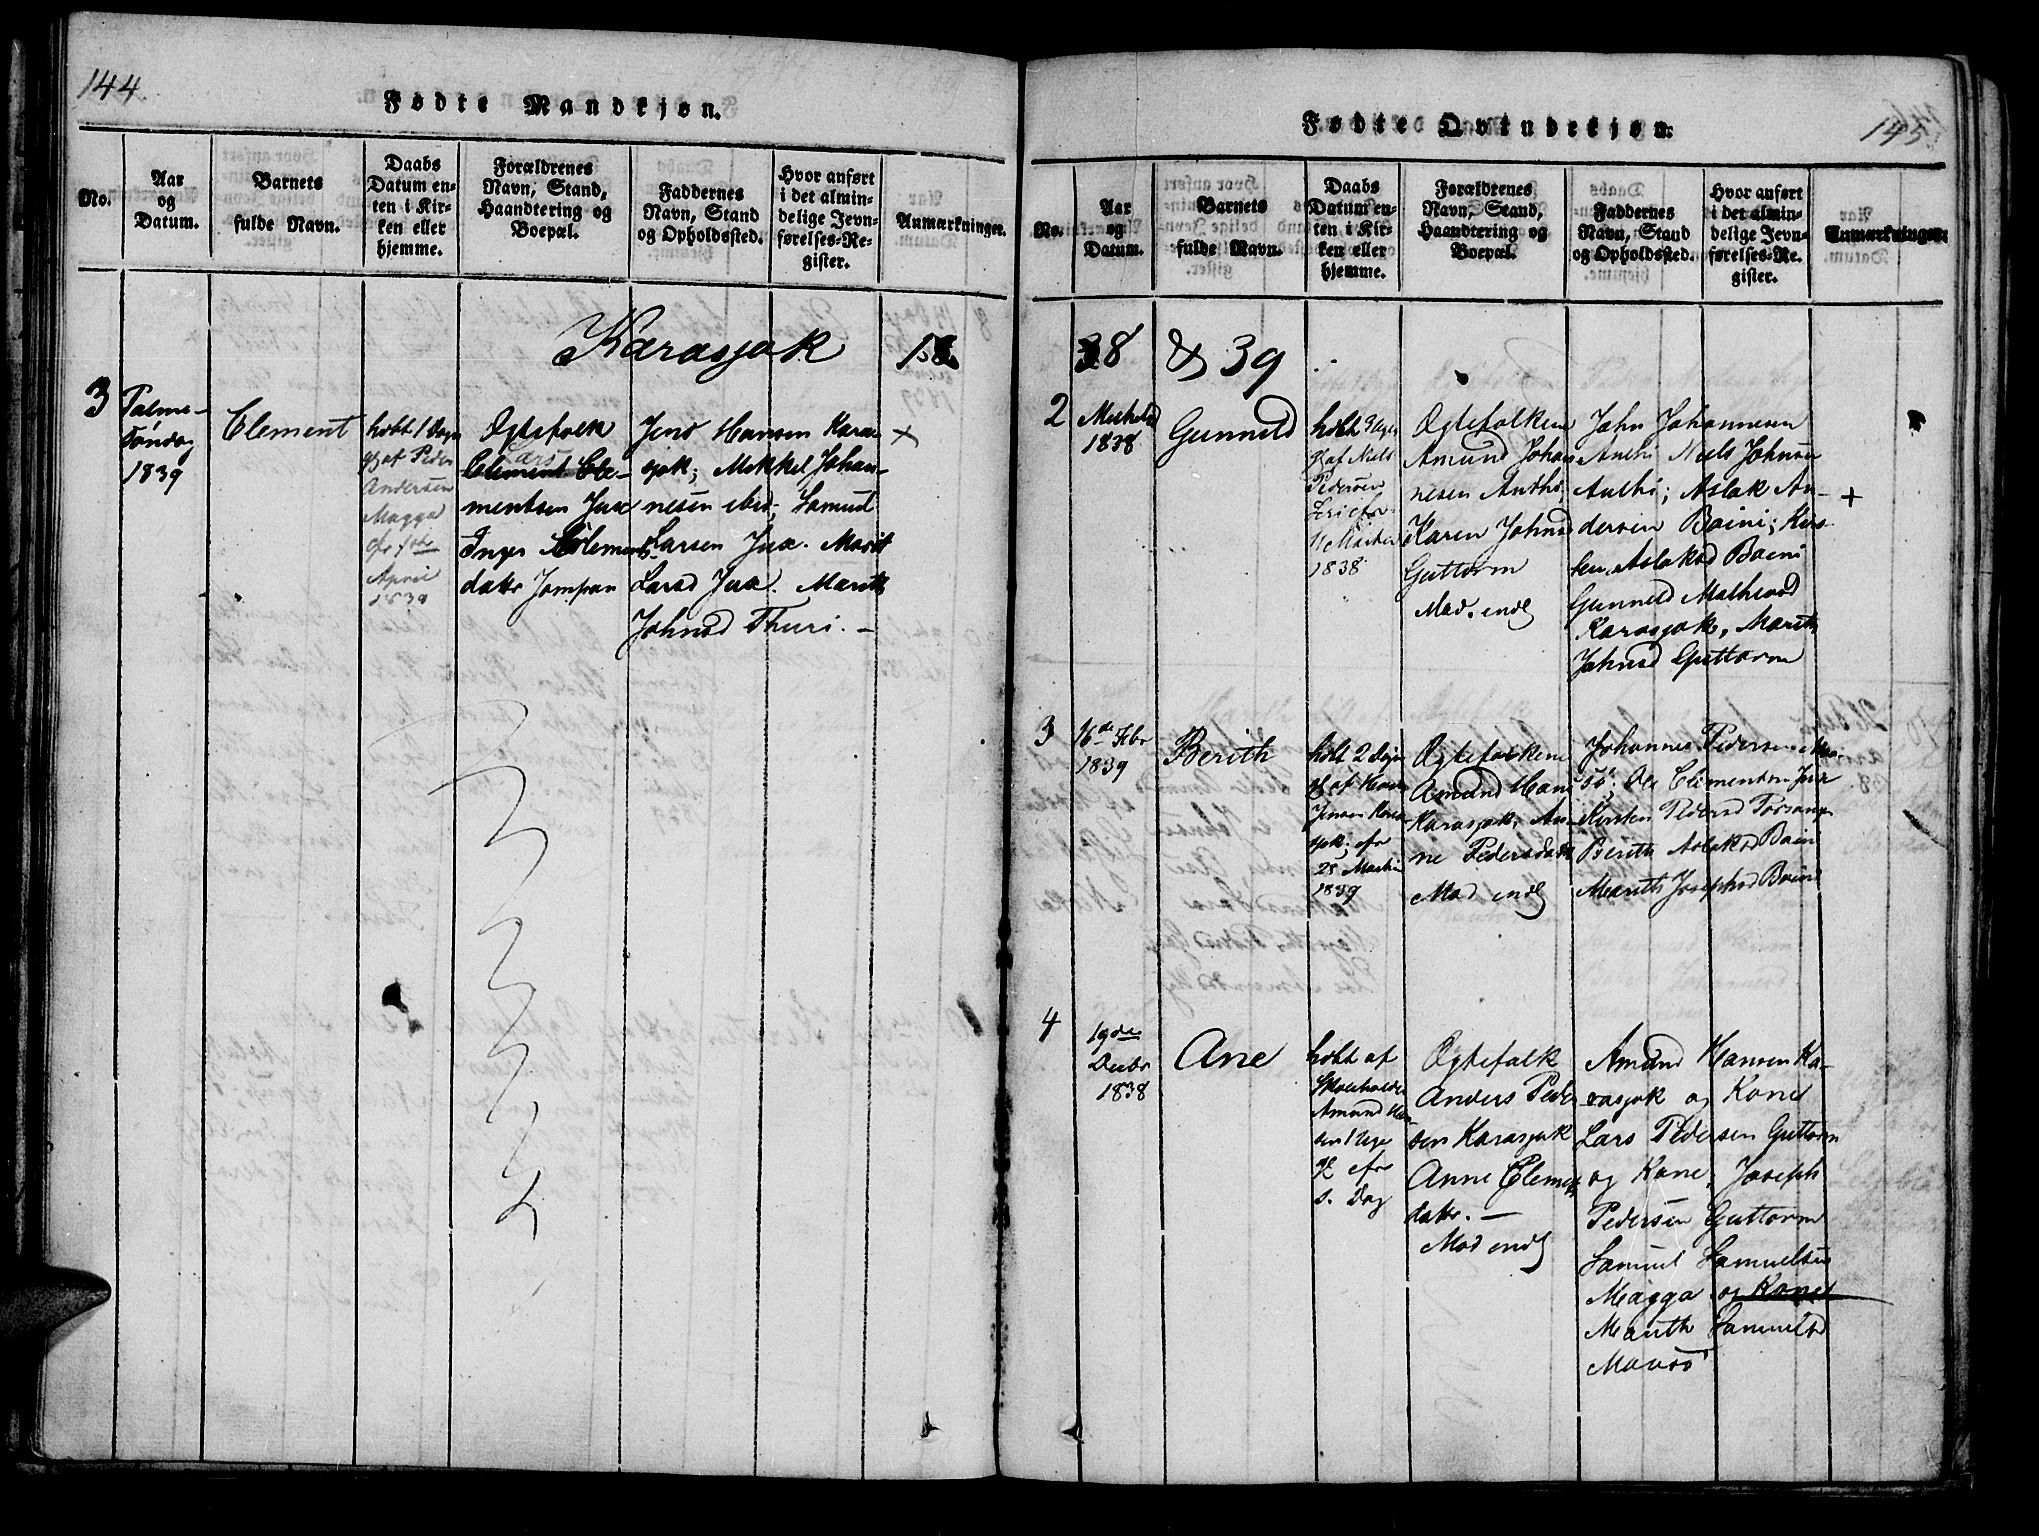 144.
Fødte Mandkjøn.
No.
Aar
og
Datum.
Barnets
fulde Navn.
Daabs
Datum en-
ten i Kir-
ken eller
hjemme.
Forældrenes
Navn, Stand,
Haandtering og
Boepæl.
Faddernes
Navn, Stand
og Opholdssted.
Hvor anført
i det almin-
delige Jevn-
førelses-Re-
gister.
Anmærkninger.
Karasjok 18
3
Palme-
Søndag
1839
Clement
hobt 1 Dag
gl af Peder
Andersen
Magga
cfr 1ste
April
1839
Ægtefolk
Lars
Clement Cle-
mentsen Jux
Inger Clements
datter Jompan
Jens Hansen Kara
sjok; Mikkel Johan-
nesen ibid; Samud
Larsen Jux. Marit
Larsd Jux. Marith
Johnsd Thuri. -
+
145.
Fødte Qvindekjøn.
No.
Aar
og
Datum.
Barnets
fulde Navn.
Daabs
Datum en-
ten i Kir-
ken eller
hjemme.
Forældrenes
Navn, Stand,
Haandtering og
Boepæl.
Faddernes
Navn, Stand
og Opholdssted.
Hvor anført
i det almin-
delige Jevn-
førelses-Re-
gister.
Anmærkninger.
38 & 39
2
1838
Gunneld
hobt 3 Uger
gl af Niels
Pedersen
1838
Ægtefolkene
Amund Johan
nesen Anthi,
Karen Johnsd
Guttorm
Mad. endl
John Johannesen
Anthi Niels Johnsen
Anthi; Aslak An-
dersen Baini; Kirs
ten Aslaksd Baini
Gunneld Mathisd
Karasjok, Marith
Johnsd Guttorm
+
3
16de Febr
1839
Berith
hobt 2 Dage
gl af Hans
Jensen Kara
sjok; cfr
28 Martii
1839
Ægtefolkene
Amund Hans
Karasjok, An-
ne Pedersdatt
Mad endl
Johannes Pedersen
Ole Clementsen Jux
Kirsten Pedersd
Berith Aslaksd Baini
Marith Josephsd Baini
4
19de
Decbr
1838
Ane
hobt af
Skoleholder
Amund Han
sen 1 Uge
gl cfr
s. Dag
Ægtefolk
Anders Peder
sen Karasjok
Anne Clements
datter. -
Mad endl
Amund Hansen Ka-
rasjok og Kone
Lars Pedersen Guttorm
og Kone, Joseph
Pedersen Guttorm
Samuel Samuelsen
Magga og Kone
Marith Samuelsd